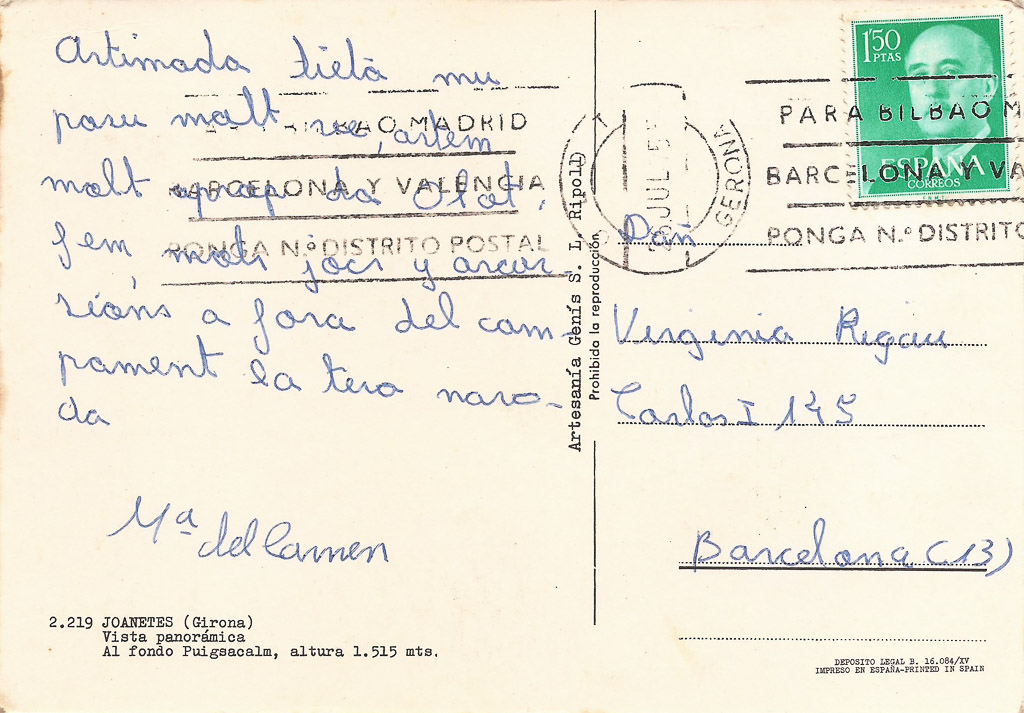 Artimada tietà mu
pasu malt ve, artem
malt aprap da Olot,
fem, molts jocs y ascur-
sions a fora del cam-
pament la tera naro-
da
Mª del Carmen
2.219 JOANETES (Girona)
Vista panorámica
Al fondo Puigsacalm, altura 1.515 mts.
BILBAO MADRID
BARCELONA Y VALENCIA
PONGA N.º DISTRITO POSTAL
Artesanía Genís S. L. Ripoll
Prohibido la reproducción
JUL
GERONA
1'50
PTAS
ESPAÑA
CORREOS
PARA BILBAO M
BARCELONA Y VA
PONGA N.º DISTRITO
Virginia Rigau
Carlos I 145
Barcelona (13)
DEPOSITO LEGAL B. 16.084/XV
IMPRESO EN ESPAÑA-PRINTED IN SPAIN